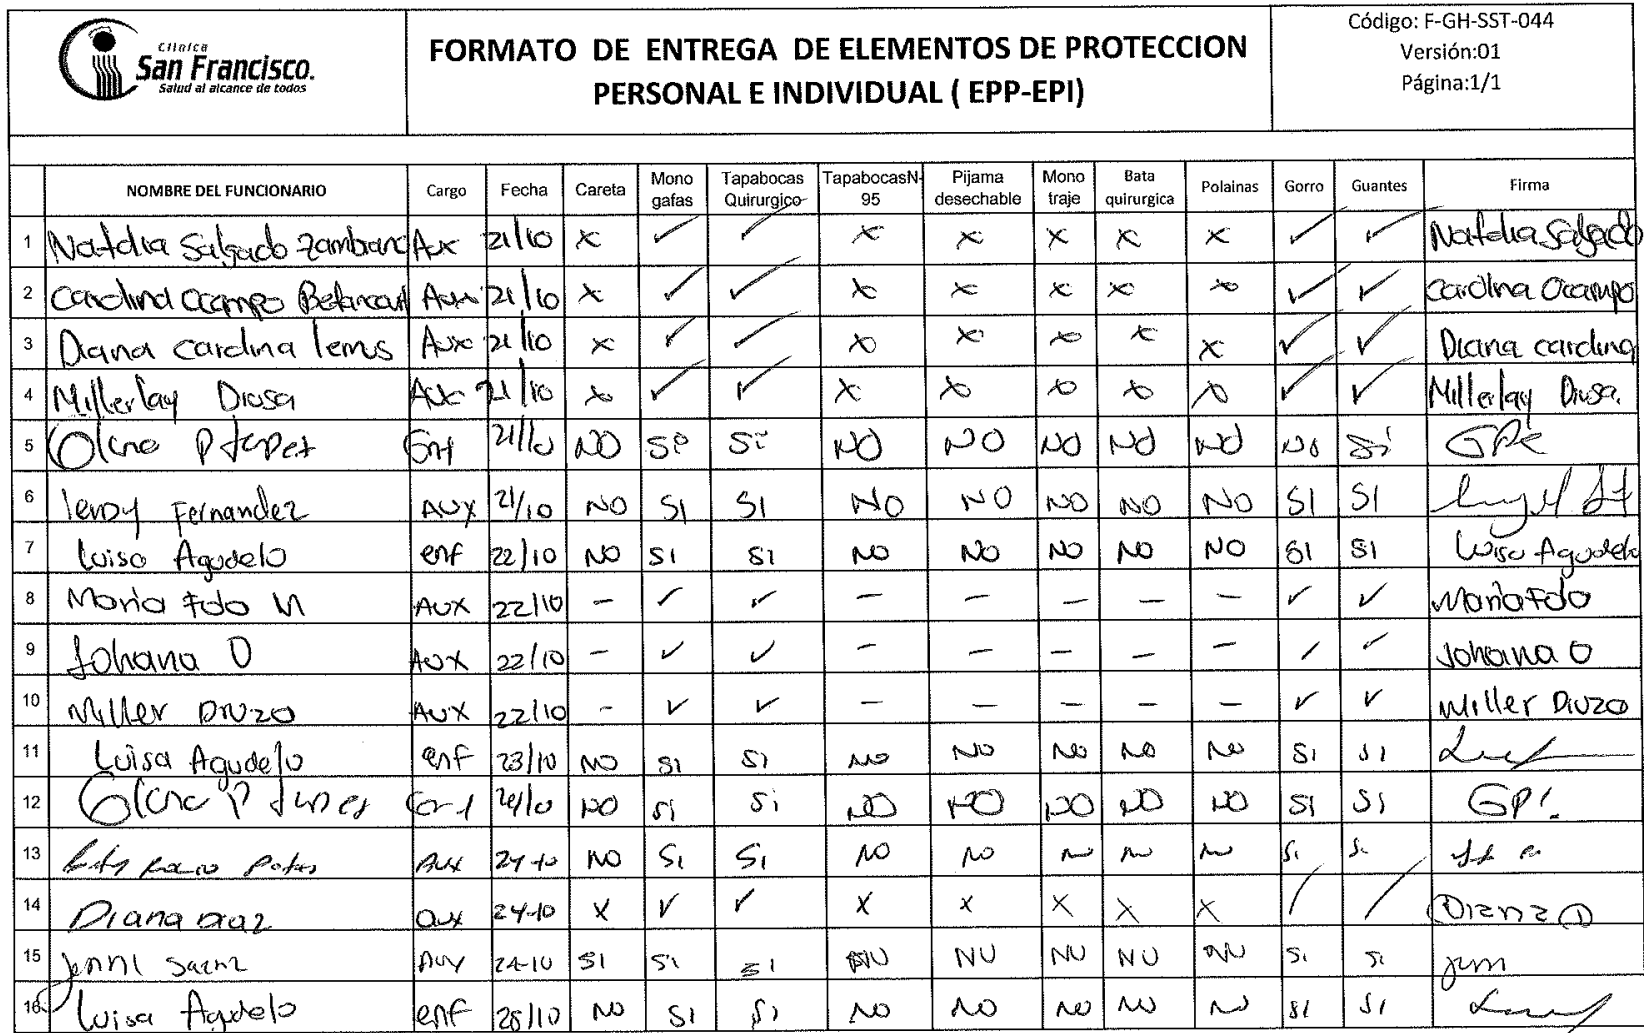 Clínica
San Francisco.
Salud al alcance de todos
FORMATO DE ENTREGA DE ELEMENTOS DE PROTECCION
PERSONAL E INDIVIDUAL ( EPP-EPI)
Código: F-GH-SST-044
Versión:01
Página:1/1
NOMBRE DEL FUNCIONARIO Cargo Fecha Careta Mono gafas Tapabocas Quirurgico TapabocasN-95 Pijama desechable Mono traje Bata quirurgica Polainas Gorro Guantes Firma
1 Natalia Salgado Zambrano Aux 21/10 x ✓ ✓ x x x x x ✓ ✓ Natalia Salgado
2 Carolina Ocampo Betancurt Aux 21/10 x ✓ ✓ x x x x x ✓ ✓ Carolina Ocampo
3 Diana Carolina lemus Aux 21/10 x ✓ ✓ x x x x x ✓ ✓ Diana Carolina
4 Millerlay Diosa Aux 21/10 x ✓ ✓ x x x x x ✓ ✓ Millerlay Diosa.
5 21/10 NO Si Si NO NO NO NO NO NO Si
6 Fernandez AUX 21/10 NO SI SI NO NO NO NO NO SI SI
7 Luisa Agudelo enf 22/10 NO SI SI NO NO NO NO NO SI SI Luisa Agudelo
8 Maria Fda M AUX 22/10 - ✓ ✓ - - - - - ✓ ✓ Maria Fda
9 Johana O AUX 22/10 - ✓ ✓ - - - - - ✓ ✓ Johana O
10 Miller Diuzo AUX 22/10 - ✓ ✓ - - - - - ✓ ✓ Miller Diuzo
11 Luisa Agudelo enf 23/10 NO SI SI NO NO NO NO NO SI SI
12 NO Si Si NO NO NO NO NO SI SI
13 Aux 24-10 NO Si Si NO NO NO NO NO Si Si
14 Diana Diaz aux 24-10 X ✓ ✓ X X X X X ✓ ✓ Diana D
15 Jenni Saenz Aux 24-10 SI Si SI NU NU NU NU Si Si
16 Luisa Agudelo enf 28/10 NO SI SI NO NO NO NO NO SI SI